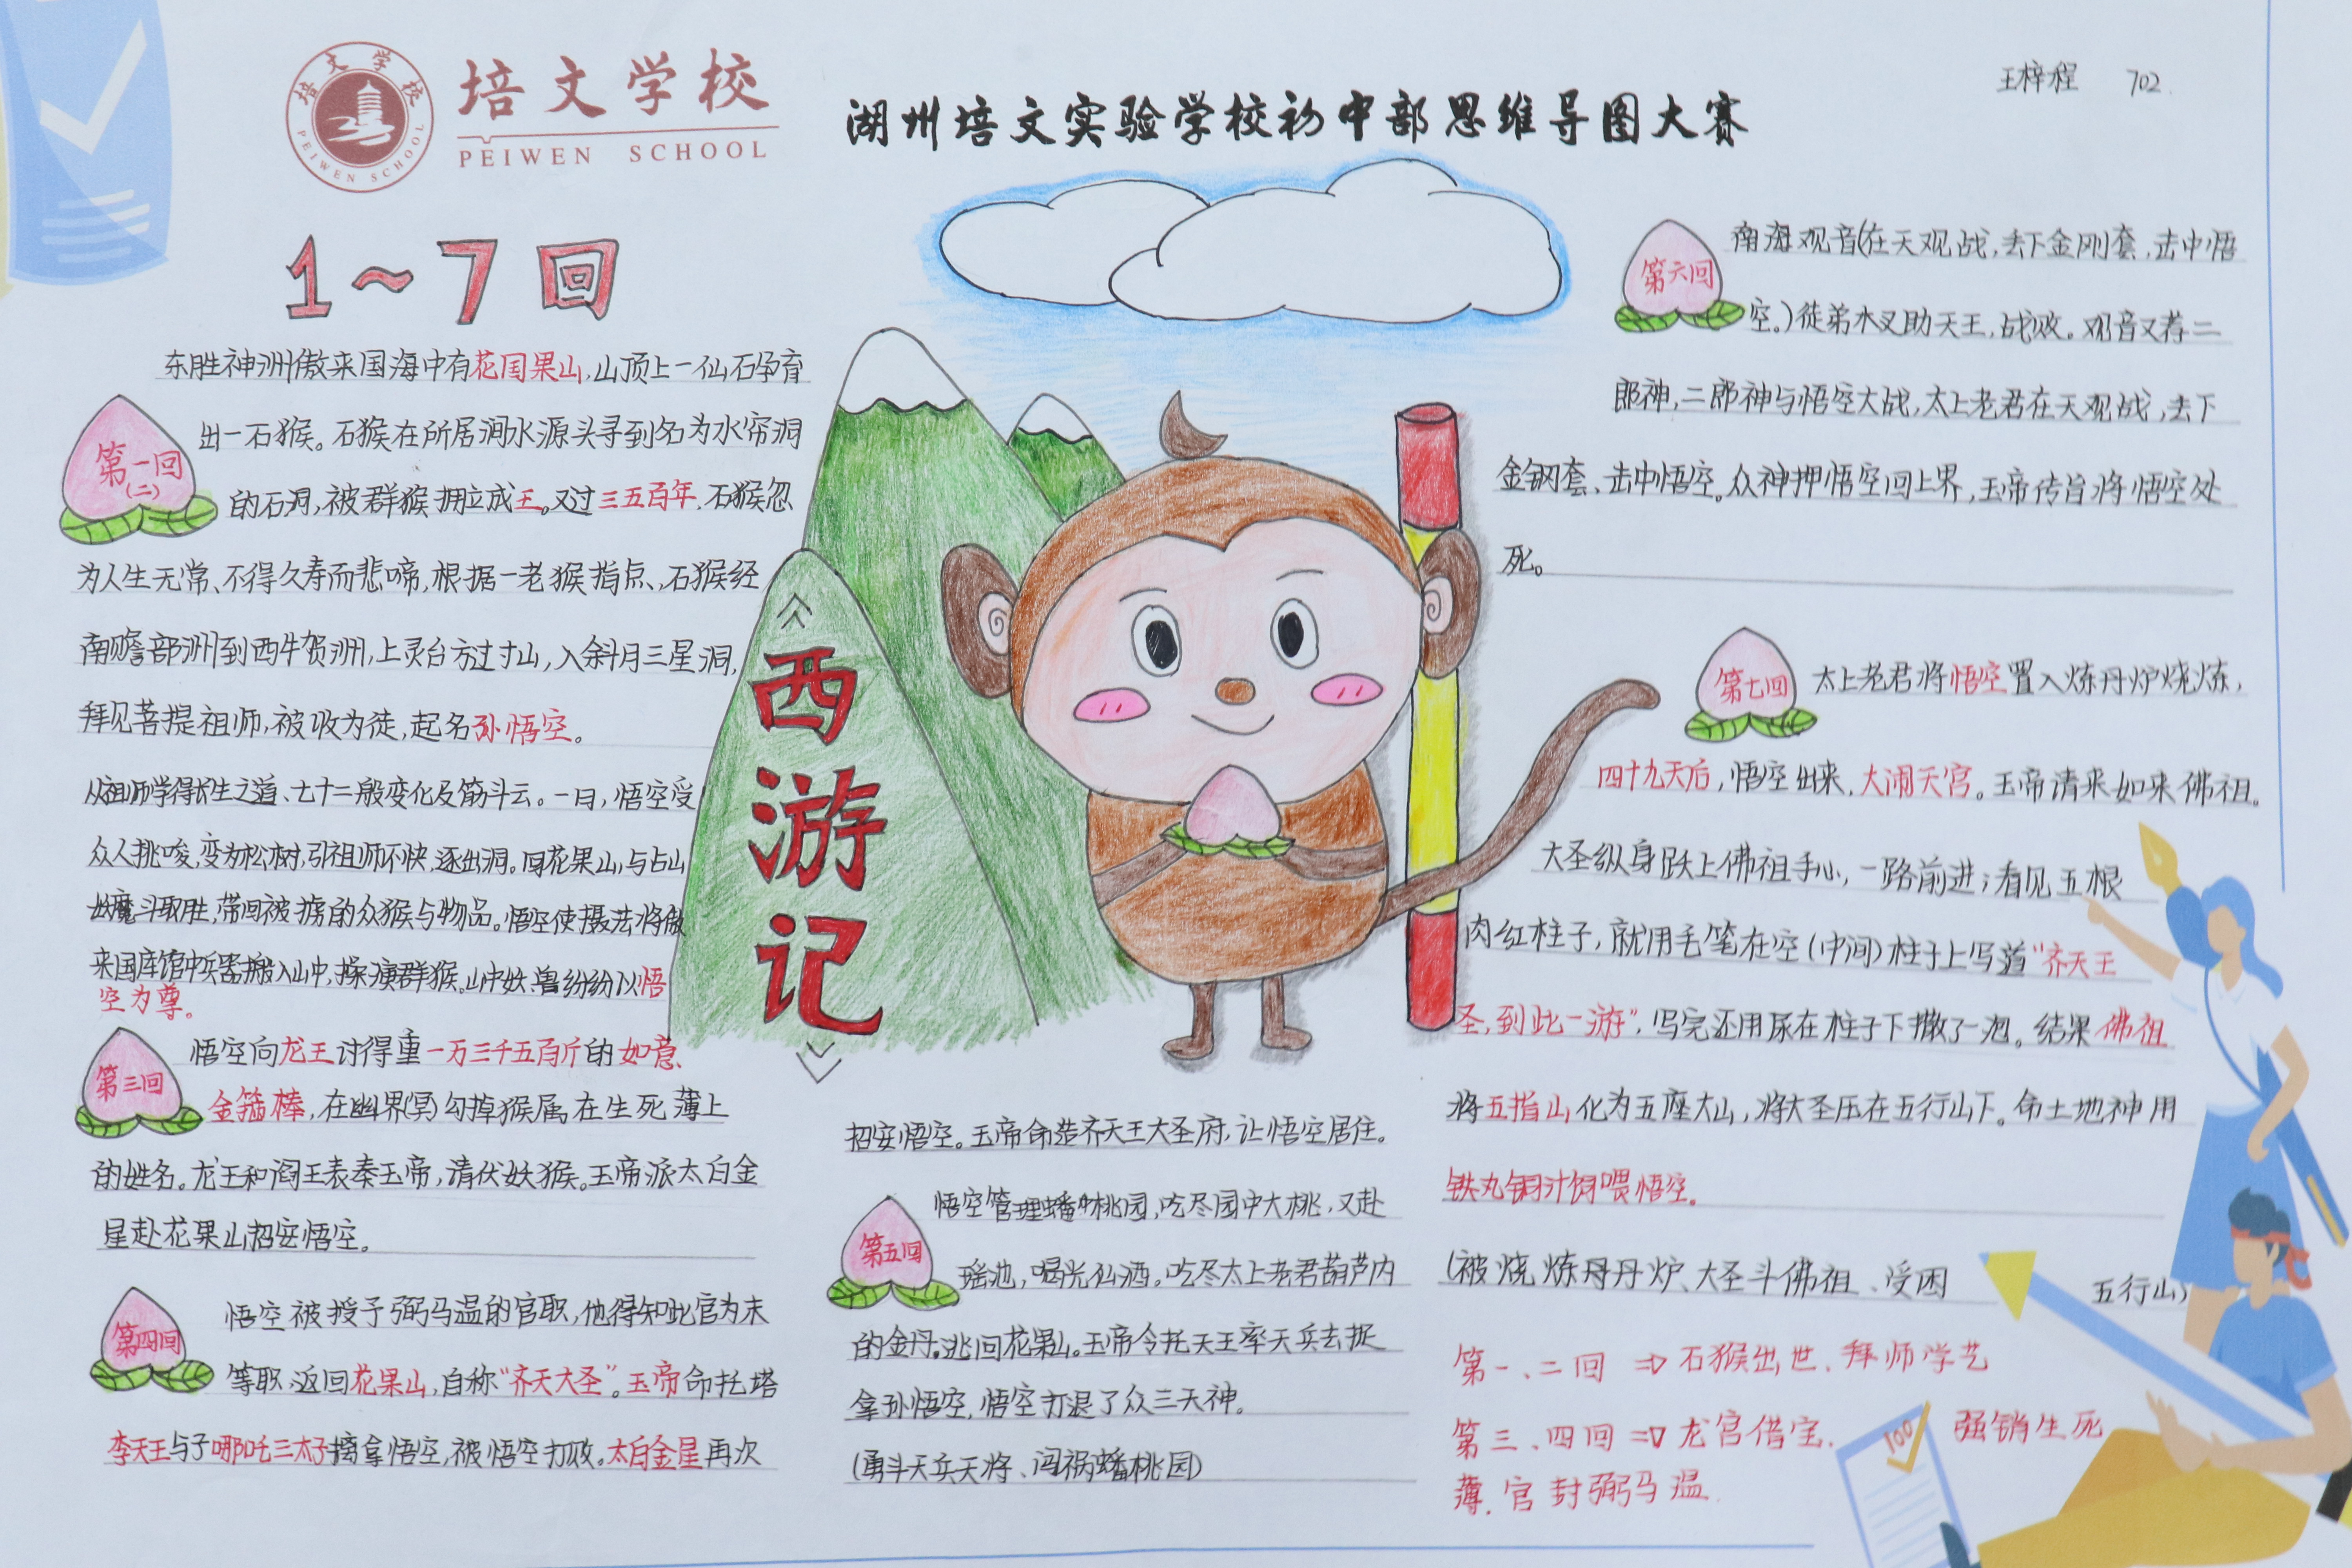 培文学校
PEIWEN SCHOOL
培文学校
PEIWEN SCHOOL
湖州培文实验学校初中部思维导图大赛
王梓程 702
1~7回
东胜神洲傲来国海中有花国果山,山顶上一仙石孕育
第一回
(二)
出一石猴。石猴在所居涧水源头寻到名为水帘洞
的石洞,被群猴拥立成王。又过三五百年,石猴忽
为人生无常、不得久寿而悲啼,根据一老猴指点、石猴经
南赡部洲到西牛贺洲,上灵台方过寸山,入斜月三星洞,
拜见菩提祖师,被收为徒,起名孙悟空。
从祖师学得长生之道、七十二般变化及筋斗云。一日,悟空受
众人挑唆,变为松树,引祖师不快,逐出洞。回花果山,与占山
妖魔斗取胜,带回被掳的众猴与物品。悟空使摄法将傲
来国库馆中兵器搬入山中,操演群猴。山中妖兽纷纷以悟
空为尊。
第三回
悟空向龙王讨得重一万三千五百斤的如意
金箍棒,在幽界(冥)勾掉猴属在生死薄上
的姓名。龙王和阎王表奏玉帝,请伏妖猴。玉帝派太白金
星赴花果山招安悟空。
第四回
悟空被授予弼马温的官职,他得知此官为末
等职,返回花果山,自称“齐天大圣”。玉帝命托塔
李天王与子哪吒三太子擒拿悟空,被悟空打败。太白金星再次
《
西
游
记
》
招安悟空。玉帝命造齐天王大圣府,让悟空居住。
第五回
悟空管理蟠桃园,吃尽园中大桃,又赴
瑶池,喝光仙酒。吃尽太上老君葫芦内
的金丹。逃回花果山。玉帝令托天王率天兵去捉
拿孙悟空,悟空打退了众三天神。
(勇斗天兵天将、闯祸蟠桃园)
第六回
南海观音(在天观战,丢下金刚套,击中悟
空。)徒弟木叉助天王,战败。观音又荐二
郎神,二郎神与悟空大战,太上老君在天观战,丢下
金钢套、击中悟空。众神押悟空回上界,玉帝传旨将悟空处
死。
第七回
太上老君将悟空置入炼丹炉烧炼,
四十九天后,悟空出来,大闹天宫。玉帝请来如来佛祖。
大圣纵身跃上佛祖手心,一路前进;看见五根
肉红柱子,就用毛笔在空(中间)柱子上写道“齐天王
圣,到此一游”,写完还用尿在柱子下撒了一泡。结果佛祖
将五指山化为五座大山,将大圣压在五行山下。命土地神用
铁丸铜汁饲喂悟空。
(被烧炼丹丹炉、大圣斗佛祖、受困 五行山)
第一、二回 ⇒ 石猴出世、拜师学艺
第三、四回 ⇒ 龙宫借宝、 强销生死
薄、官封弼马温
100